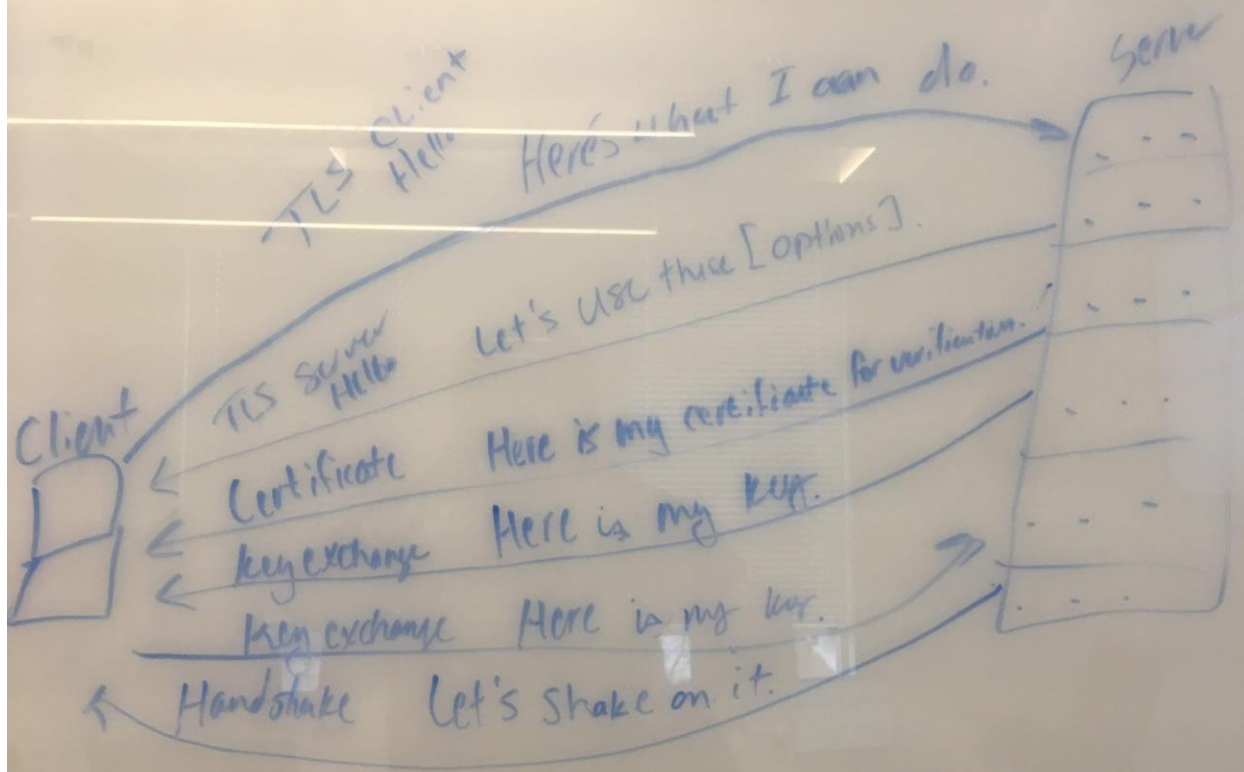 Server
TLS Client
Hello
Here's what I can do.
TLS Server
Hello
Let's use these [options].
Client
Certificate Here is my certificate for verification.
key exchange Here is my key.
key exchange Here is my key.
Handshake Let's shake on it.